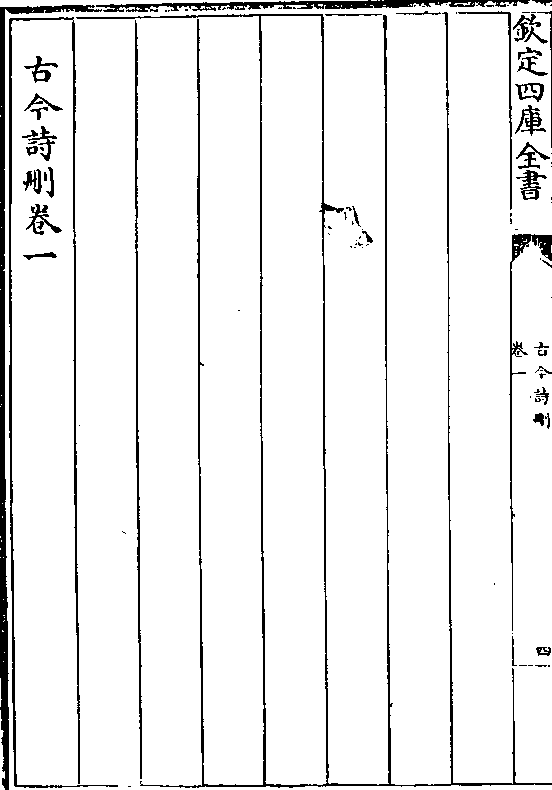 欽定四庫全書
古今詩刪
卷一
四
古今詩刪卷一